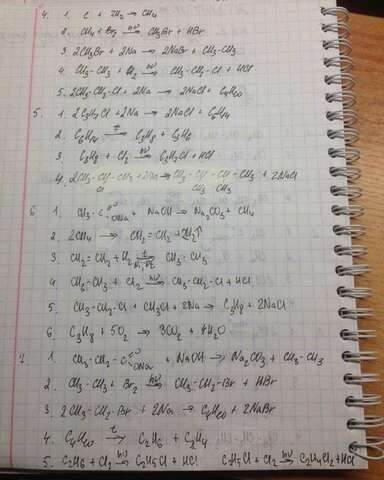 4. 1. C + 2H₂ → CH₄
2. CH₄ + Br₂ →(hν) CH₃Br + HBr
3. 2CH₃Br + 2Na → 2NaBr + CH₃-CH₃
4. CH₃-CH₃ + Cl₂ →(hν) CH₃-CH₂-Cl + HCl
5. 2CH₃-CH₂-Cl + 2Na → 2NaCl + C₄H₁₀
5. 1. 2C₃H₇Cl + 2Na → 2NaCl + C₆H₁₄
2. C₆H₁₄ →(t) C₃H₈ + C₃H₆
3. C₃H₈ + Cl₂ →(hν) C₃H₇Cl + HCl
4. 2CH₃-CH-CH₃ + 2Na → CH₃-CH-CH-CH₃ + 2NaCl
Cl CH₃ CH₃
6. 1. CH₃-C=O ONa + NaOH → Na₂CO₃ + CH₄
2. 2CH₄ → CH₂=CH₂ + 2H₂↑
3. CH₂=CH₂ + H₂ →(t, Ni, Pt) CH₃-CH₃
4. CH₃-CH₃ + Cl₂ →(hν) CH₃-CH₂-Cl + HCl
5. CH₃-CH₂-Cl + CH₃Cl + 2Na → C₃H₈ + 2NaCl
6. C₃H₈ + 5O₂ → 3CO₂ + 4H₂O
7. 1. CH₃-CH₂-C=O ONa + NaOH → Na₂CO₃ + CH₃-CH₃
2. CH₃-CH₃ + Br₂ →(hν) CH₃-CH₂-Br + HBr
3. 2CH₃-CH₂-Br + 2Na → C₄H₁₀ + 2NaBr
4. C₄H₁₀ →(t) C₂H₆ + C₂H₄
5. C₂H₆ + Cl₂ →(hν) C₂H₅Cl + HCl C₂H₅Cl + Cl₂ →(hν) C₂H₄Cl₂ + HCl